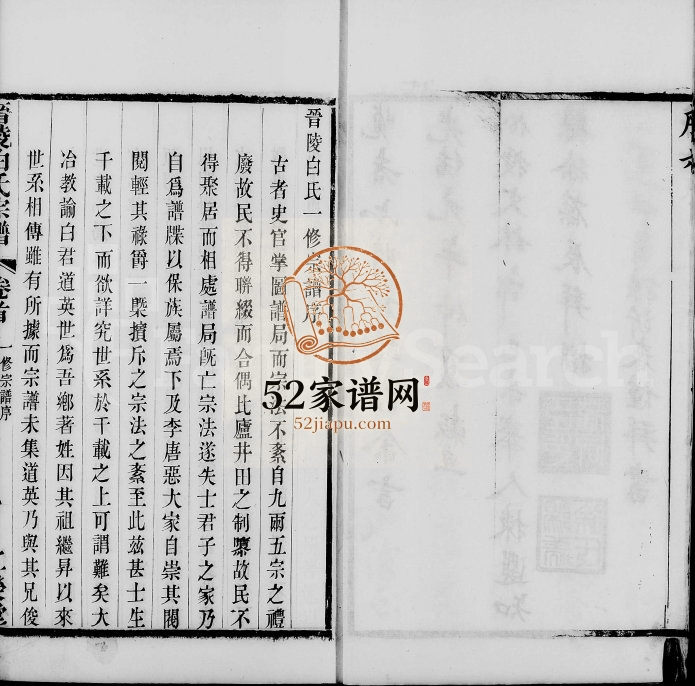 晉陵白氏一修宗譜序
古者史官掌圖譜局而宗法不紊自九兩五宗之禮
廢故民不得聯綴而合偶比廬井田之制隳故民不
得聚居而相處譜局旣亡宗法遂失士君子之家乃
自爲譜牒以保族屬焉下及李唐惡大家自崇其閥
閱輕其祿爵一槩擯斥之宗法之紊至此玆甚士生
千載之下而欲詳究世系於千載之上可謂難矣大
冶教諭白君道英世爲吾鄉著姓因其祖繼昇以來
世系相傳雖有所據而宗譜未集道英乃與其兄俊
晉陵白氏宗譜 卷首 一修宗譜序
52家谱网
52jiapu.com
Search